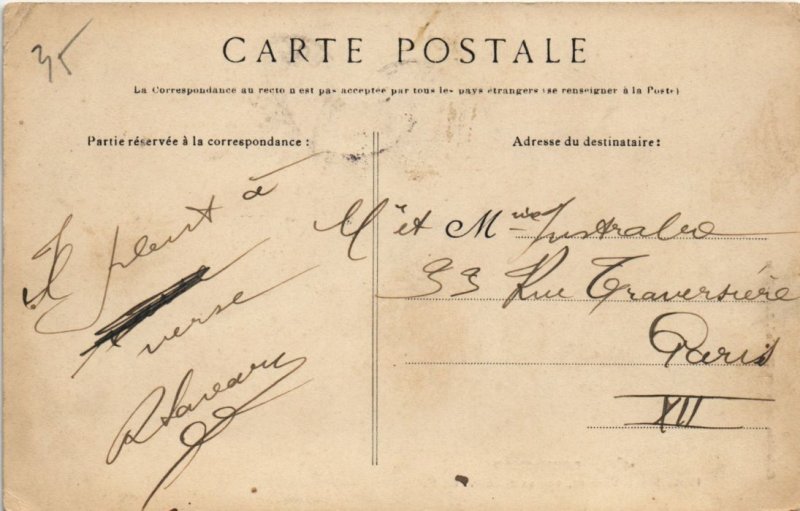 35
CARTE POSTALE
La Correspondance au recto n'est pas acceptée par tous les pays étrangers (se renseigner à la Poste)
Partie réservée à la correspondance :
Adresse du destinataire :
Il pleut à
verse
M et Mme
33 Rue Traversière
Paris
XII